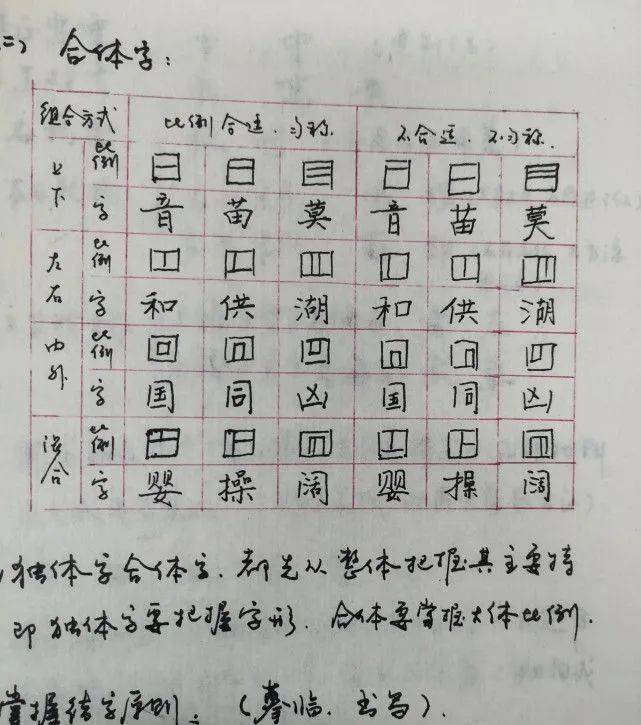 二) 合体字:
组合方式 比例合适.匀称. 不合适.不匀称.
上下 比例
字 音 苗 莫 音 苗 莫
左右 比例
字 和 供 湖 和 供 湖
内外 比例
字 国 同 凶 国 同 凶
混合 比例
字 婴 操 阔 婴 操 阔
独体字合体字.都先从整体把握其主要特
即独体字要把握字形.合体要掌握大体比例.
掌握结字原则: (摹临.书写).